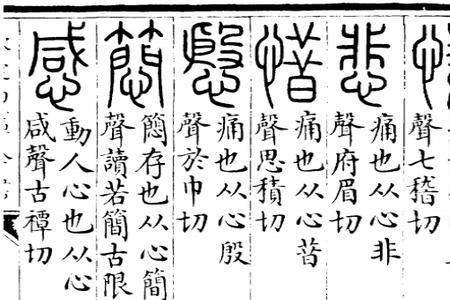 聲七稽切
悲
痛也从心非
聲府眉切
惜
痛也从心昔
聲思積切
慇
痛也从心殷
聲於巾切
簡存也从心簡
聲讀若簡古限
感
動人心也从心
咸聲古禫切